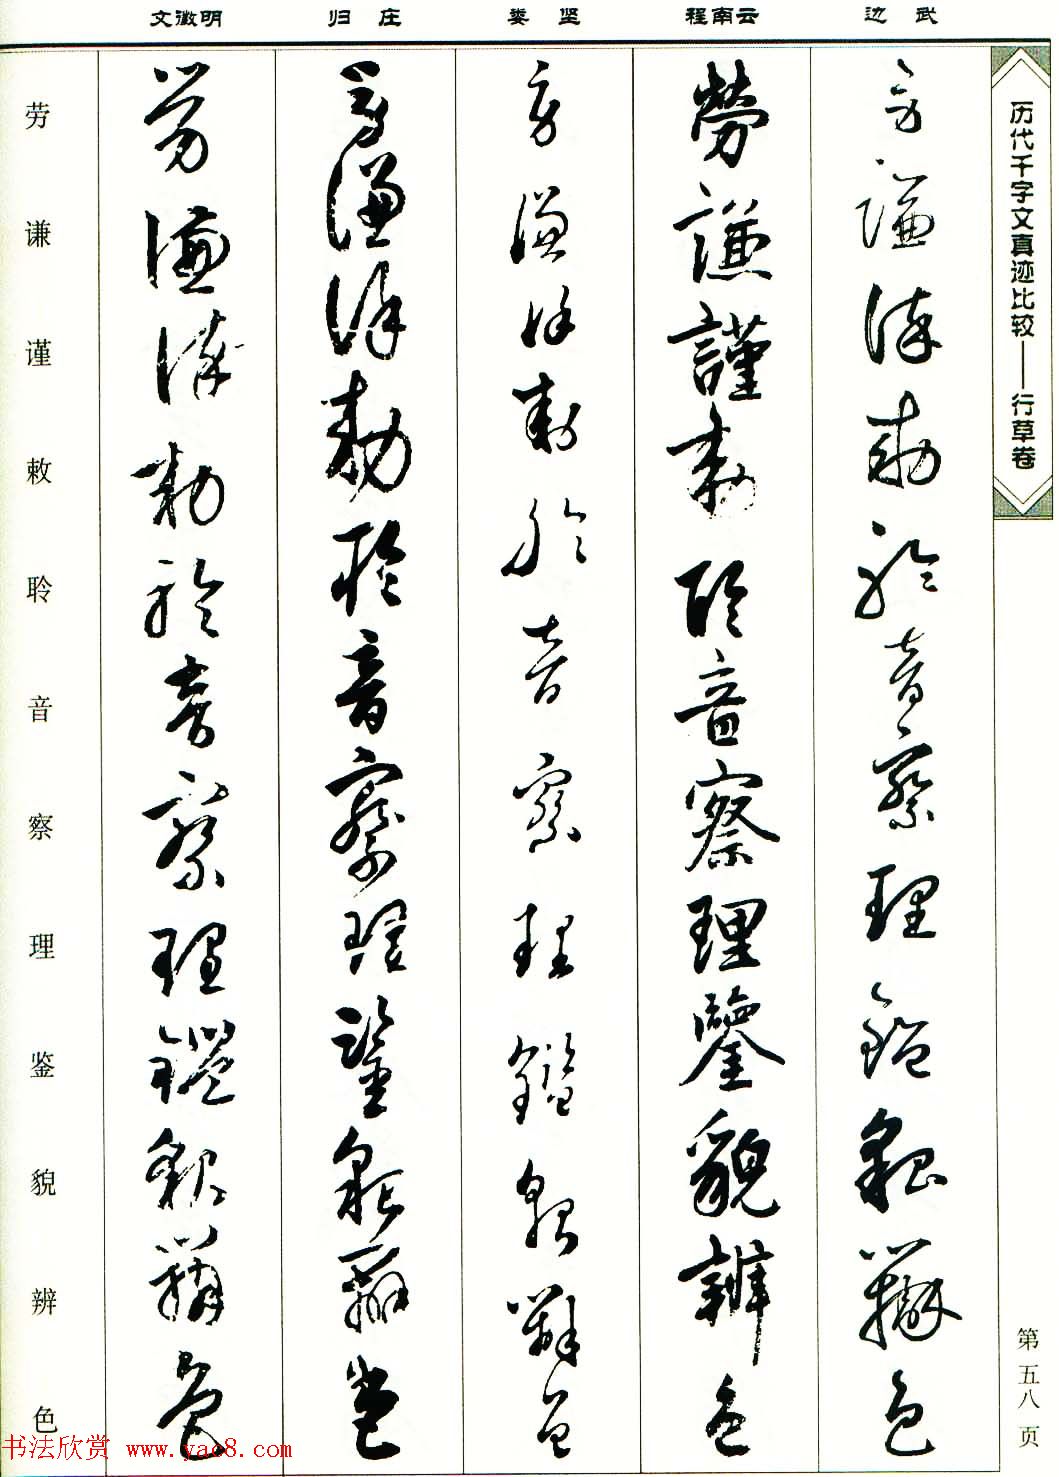 文徵明 归 庄 娄 坚 程南云 边 武
历代千字文真迹比较——行草卷
劳 謙 謹 敕 聆 音 察 理 鑑 貌 辨 色
勞 謙 謹 敕 聆 音 察 理 鑒 貌 辨 色
劳 謙 謹 敕 聆 音 察 理 鑑 貌 辨 色
劳 謙 謹 敕 聆 音 察 理 鑒 貌 辨 色
劳 謙 謹 敕 聆 音 察 理 鑑 貌 辨 色
劳
谦
谨
敕
聆
音
察
理
鉴
貌
辨
色
第五八页
书法欣赏 www.yac8.com